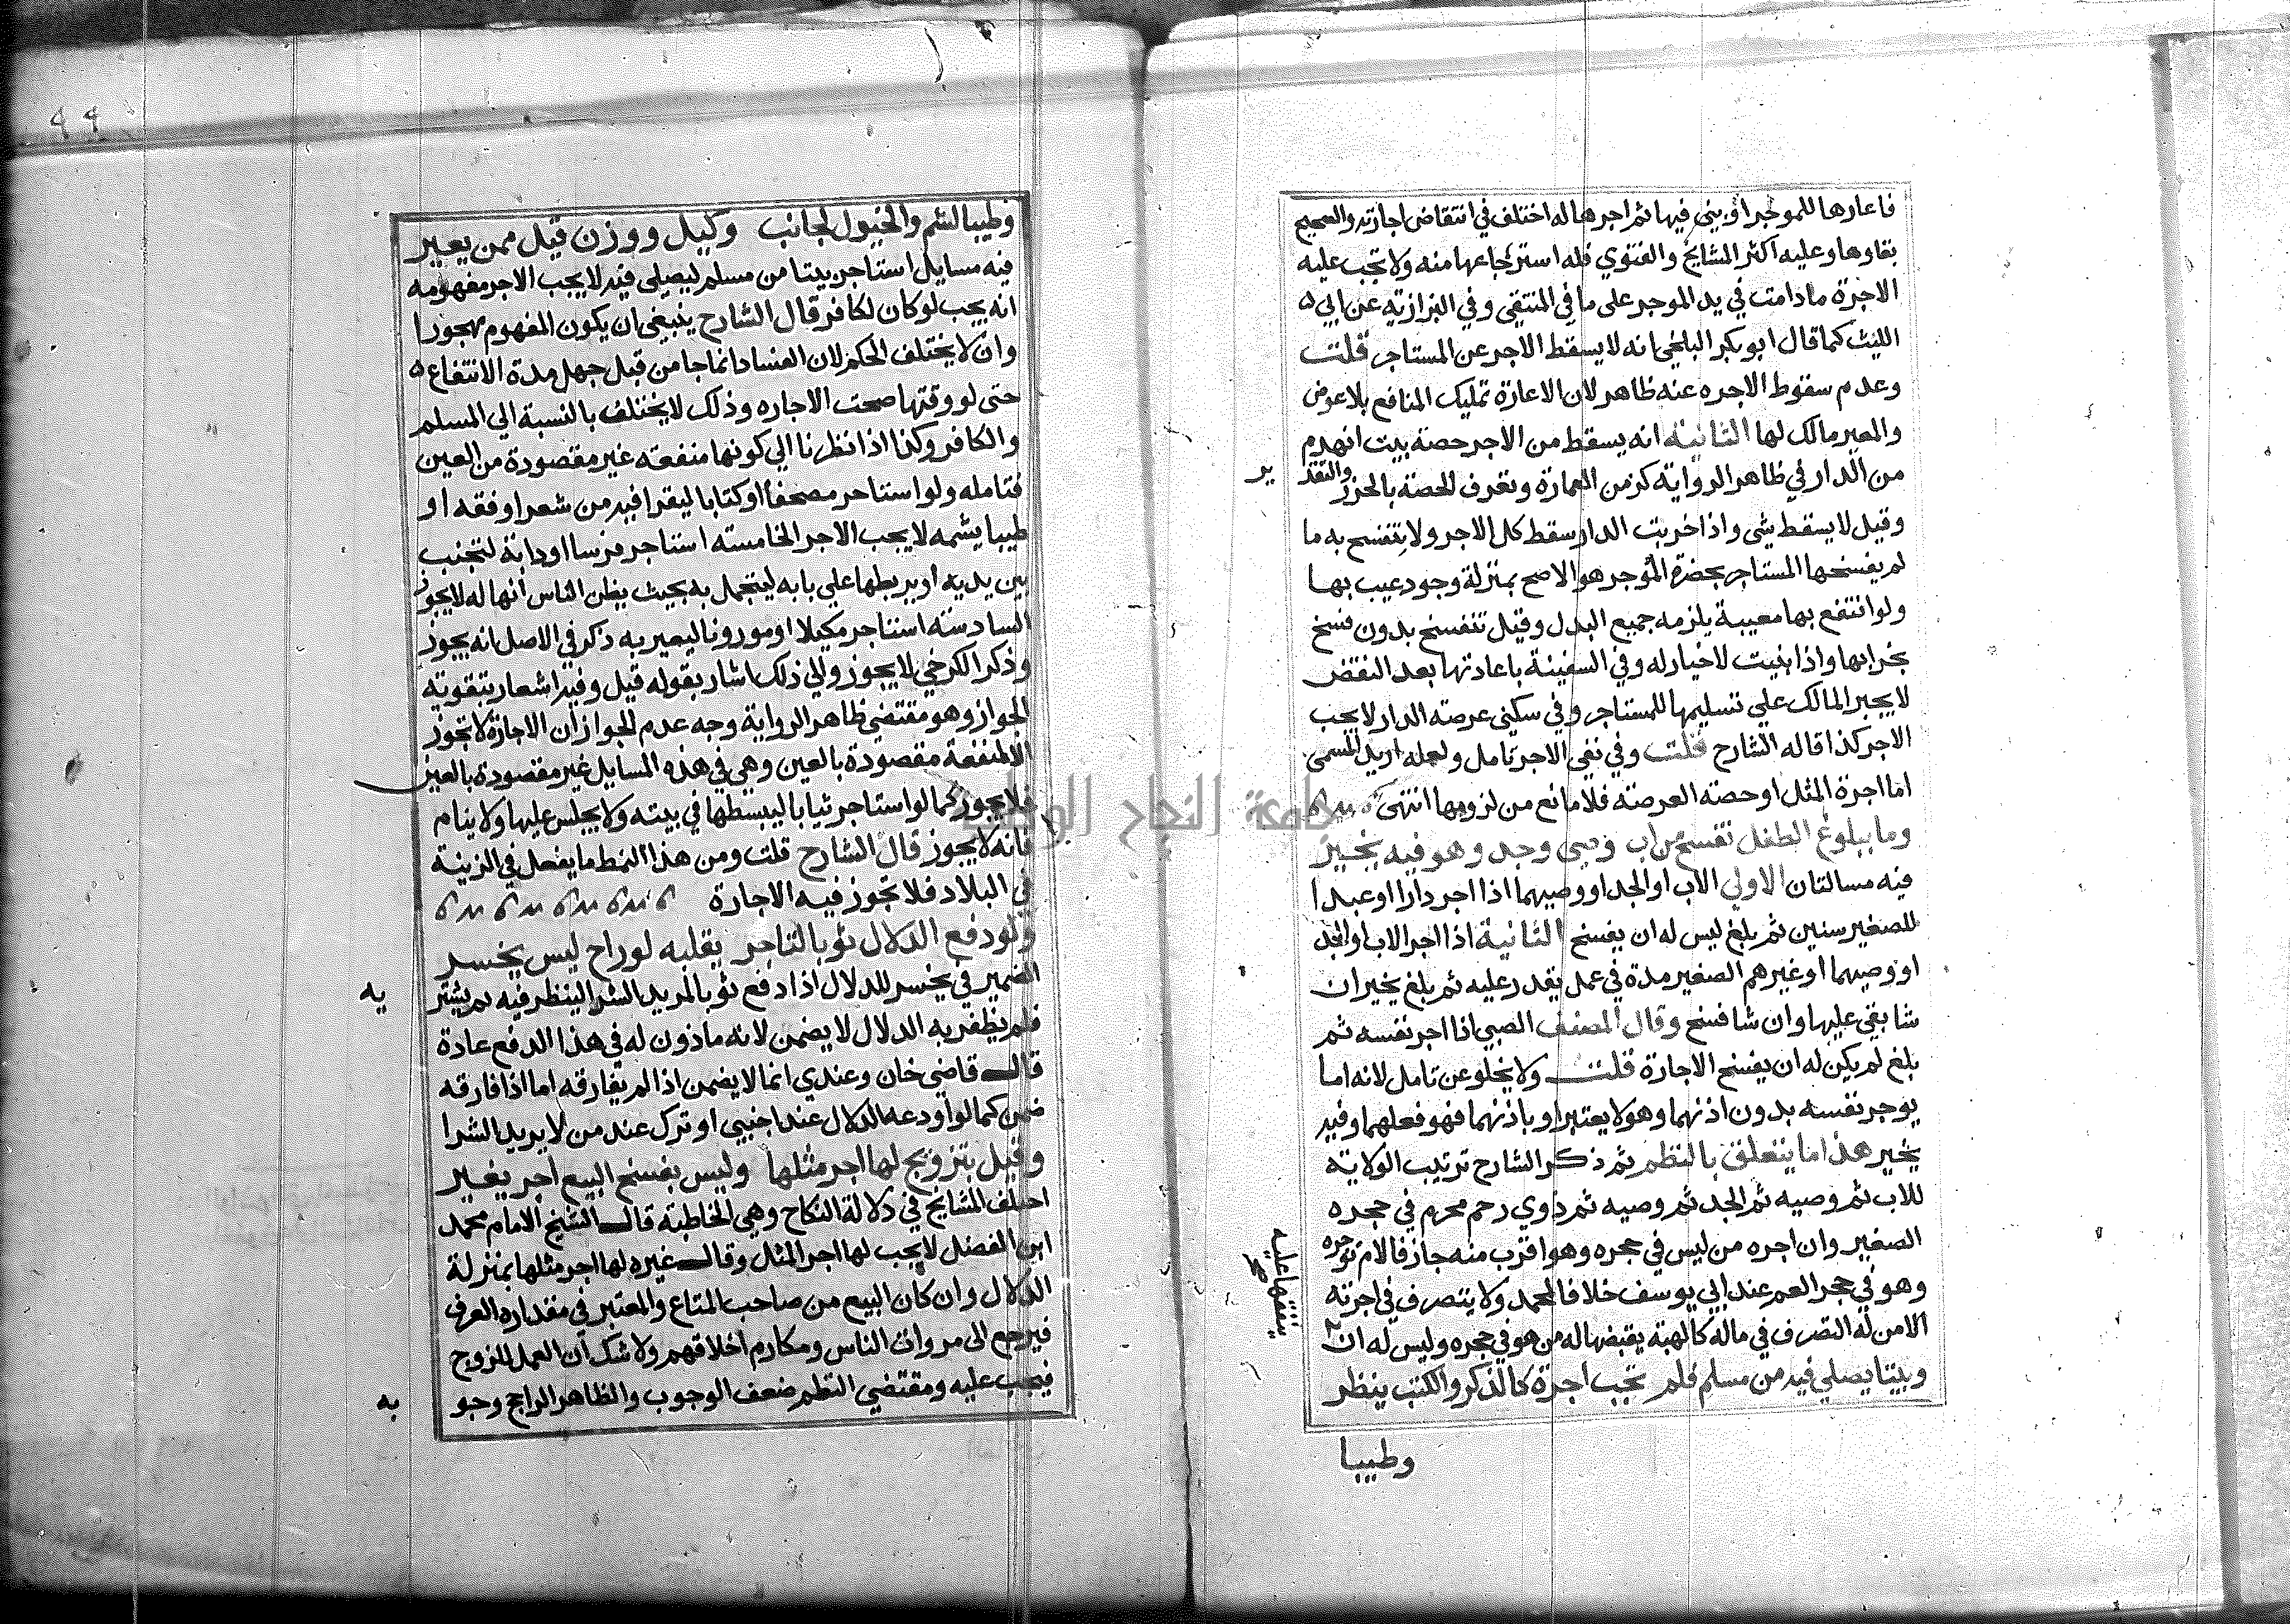 فاعارها للموجر او بني فيها ثم اجرها له اختلف في انتقاض اجازته والصحيح
بقاوها وعليه اكثر المشايخ والفتوي فله استرجاعها منه ولا تجب عليه
الاجرة مادامت في يد الموجر على ما في المنتقي وفي البزازية عن ابي ه
الليث كما قال ابو بكر البلخي انه لا يسقط الاجر عن المستاجر قلت
وعدم سقوط الاجره عنه ظاهر لان الاعارة تمليك المنافع بلا عوض
والمعير مالك لها الثانية انه يسقط من الاجر حصة بيت انهدم
من الدار في ظاهر الرواية كزمن العمارة وتعرف الحصة بالحزر والتقد
ير
وقيل لا يسقط شي واذا خربت الدار سقط كل الاجر ولا يتفسخ به ما
لم يفسخها المستاجر بحضرة الموجر هو الاصح بمنزلة وجود عيب بها
ولو انتفع بها معيبة يلزمه جميع البدل وقيل تنفسخ بدون فسخ
بخرابها واذا بنيت لا خيار له وفي السفينة باعادتها بعد النقض
لا يجبر المالك علي تسليمها للمستاجر وفي سكني عرصته الدار لا يجب
الاجر كذا قاله الشارح قلت وفي نفي الاجر تامل ولعله اريد المسمى
اما اجرة المثل او حصته العرصته فلا مانع من لزومها انتهى
وما ببلوغ الطفل تفسخ من اب وصي وجد وهو فيه يخير
فيه مسالتان الاولي الاب او الجد او وصيهما اذا اجر دارا او عبدا
للصغير سنين ثم بلغ ليس له ان يفسخ الثانية اذا اجر الاب او الجد
او وصيهما او غيرهم الصغير مدة في عمل يقدر عليه ثم بلغ يخير ان
شا بقي عليها وان شا فسخ وقال المصنف الصبي اذا اجر نفسه ثم
بلغ لم يكن له ان يفسخ الاجارة قلت ولا يخلو عن تامل لانه اما
يوجر نفسه بدون اذنهما وهو لا يعتبر او باذنهما فهو فعلهما وفيه
يخير هذا اما يتعلق بالنظم ثم ذكر الشارح ترتيب الولاية
للاب ثم وصيه ثم الجد ثم وصيه ثم ذوي رحم محرم في حجره
الصغير وان اجره من ليس في حجره وهو اقرب منه جاز فالام توجره
وهو في حجر العم عند ابي يوسف خلافا لمحمد ولا يتصرف في اجرته
الا من له التصرف في ماله كالهبة يقبضها له من هو في حجره وليس له ان
ينفقها عليه صح
وبيتا يصلي فيه من مسلم فلم تجب اجرة كالذكر والكتب ينظر
وطيبا
وطيبا لشم والخيول لجانب وكيل ووزن قيل ممن يعير
فيه مسايل استاجر بيتا من مسلم ليصلي فيه لا يجب الاجر مفهومه
انه يجب لو كان لكافر قال الشارح ينبغي ان يكون المفهوم مهجورا
وان لا يختلف الحكم لان الفساد انما جا من قبل جهل مدة الانتفاع ه
حتى لو وقتها صحت الاجاره وذلك لا يختلف بالنسبة الي المسلم
والكافر وكذا اذا نظرنا الي كونها منفعته غير مقصودة من العين
فتامله ولو استاجر مصحفا او كتابا ليقرا فيه من شعر او فقه او
طيبا يشمه لا يجب الاجر الخامسته استاجر فرسا او دابة لتجنب
بين يديه او يربطها علي بابه ليتجمل به بحيث يظن الناس انها له لا يجوز
السادسته استاجر مكيلا او موزونا ليعير به ذكر في الاصل انه يجوز
وذكر الكرخي لا يجوز والي ذلك اشار بقوله قيل وفيه اشعار بتقوية
الجواز وهو مقتضي ظاهر الرواية وجه عدم الجواز ان الاجارة لا تجوز
الا لمنفعة مقصودة بالعين وهي في هذه المسايل غير مقصودة بالعين
فلا يجوز كما لو استاجر ثيابا ليبسطها في بيته ولا يجلس عليها ولا ينام
فانه لا يجوز قال الشارح قلت ومن هذا النمط ما يفعل في الزينة
في البلاد فلا تجوز فيه الاجارة
ولو دفع الدلال ثوبا لتاجر يقلبه لو راح ليس يخسر
الضمير في يخسر للدلال اذا دفع ثوبا لمريد الشرا لينظر فيه ثم يشتر
يه
فلم يظفر به الدلال لا يضمن لانه ماذون له في هذا الدفع عادة
قال قاضي خان وعندي انما لا يضمن اذا لم يفارقه اما اذا فارقه
ضمن كما لو اودعه الدلال عند اجنبي او ترك عند من لا يريد الشرا
وقيل بتزويج لها اجر مثلها وليس بفسخ البيع اجر يغير
اختلف المشايخ في دلالة النكاح وهي الخاطبة قال الشيخ الامام محمد
ابن الفضل لا يجب لها اجر المثل وقال غيره لها اجر مثلها بمنزلة
الدلال وان كان البيع من صاحب المتاع والمعتبر في مقداره العرف
فيرجع الى مروات الناس ومكارم اخلاقهم ولا شك ان العمل للزوج
فيجب عليه ومقتضي النظم ضعف الوجوب والظاهر الراجح وجو
به
جامعة النجاح الوطنية